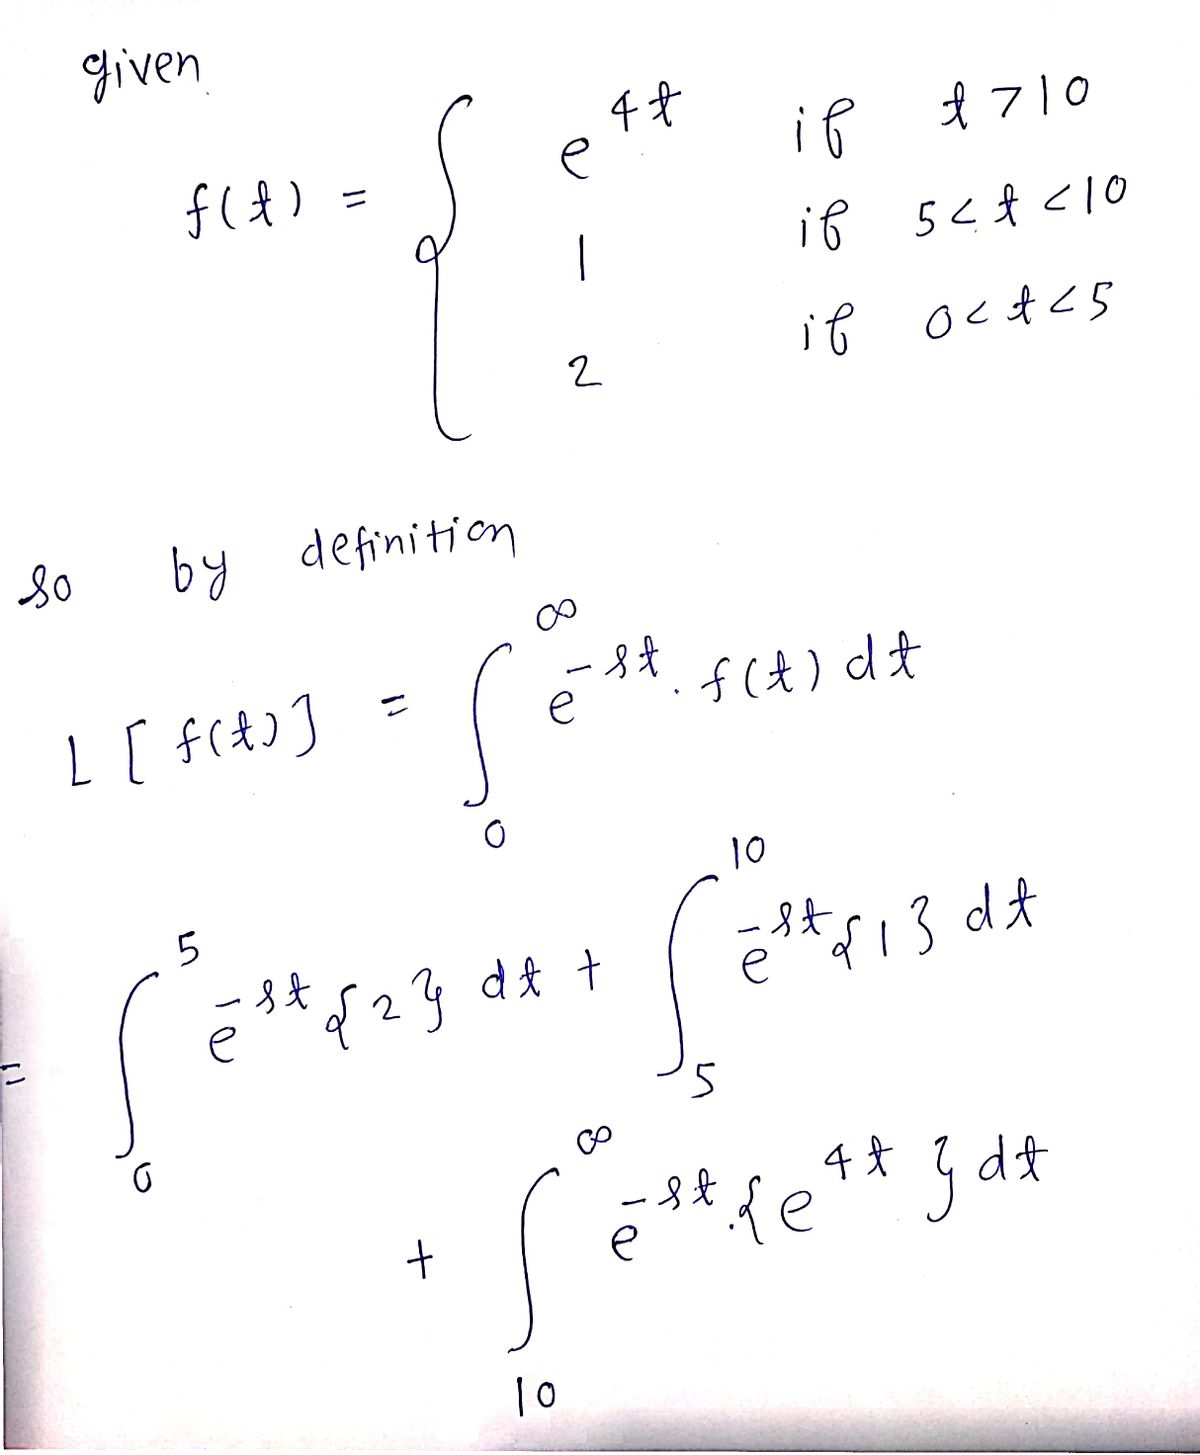 given
f(t) = { e^{4t} if t > 10
1 if 5 < t < 10
2 if 0 < t < 5
so by definition
L [ f(t) ] = ∫_0^∞ e^{-st} . f(t) dt
= ∫_0^5 e^{-st} {2} dt + ∫_5^{10} e^{-st} {1} dt
+ ∫_{10}^∞ e^{-st} . {e^{4t}} dt